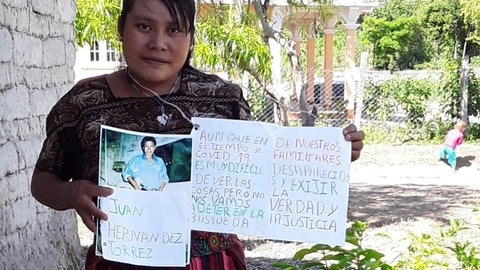 JUAN
HERNANDEZ
TORREZ
AUNQUE EN
EL TIEMPO DE
COVID 19
ES MUI DIFICIL
DE VER LAS
COSAS, PERO NO
NOS VAMOS
DETER EN LA
BUSQUEDA
DE NUESTROS
FAMILIARES
DESAPARECIDO
S Y EXIJIR LA
VERDAD Y
LA JUSTICIA